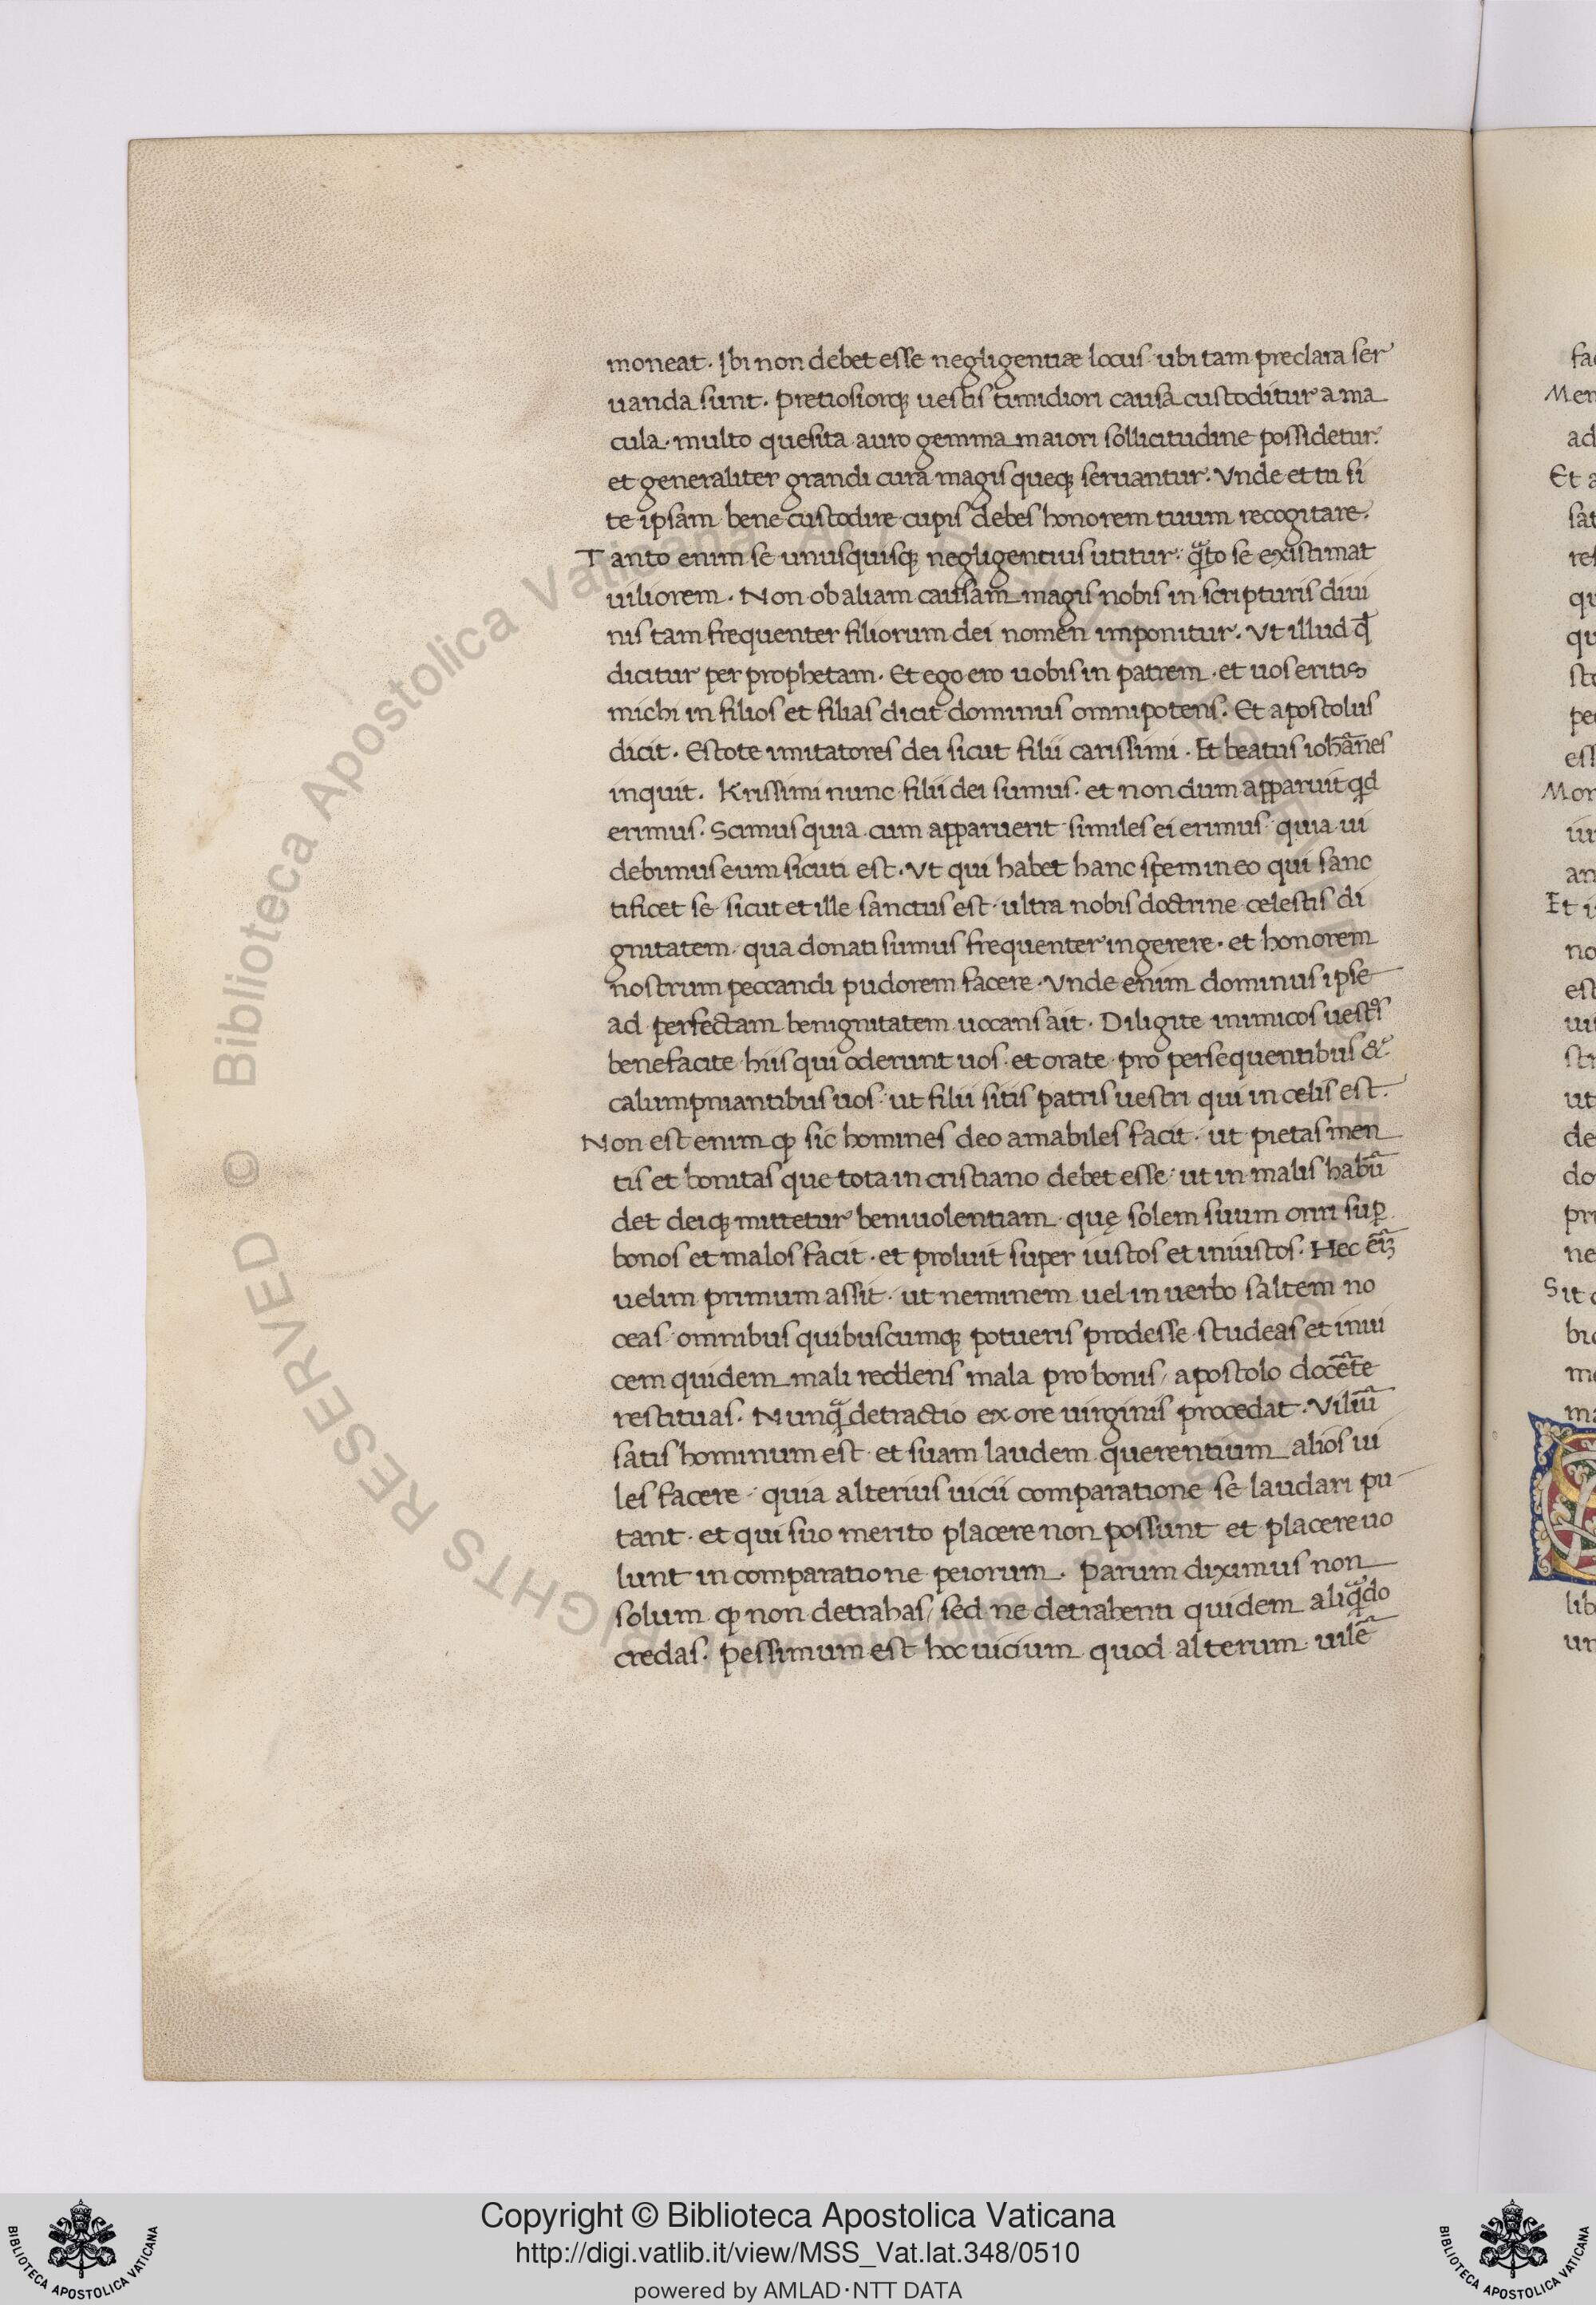 moneat. Ibi non debet esse negligentiæ locus ubi tam preclara ser
uanda sunt. Pretiosiorq; uestis timidiori causa custoditur a ma
cula. multo quesita auro gemma maiori sollicitudine possidetur.
et generaliter grandi cura magis queq; seruantur. Vnde et tu si
te ipsam bene custodire cupis debes honorem tuum recogitare.
Tanto enim se unusquisq; negligentius utitur. q̃to se existimat
uiliorem. Non ob aliam causam magis nobis in scripturis diui
nis tam frequenter filiorum dei nomen imponitur. Vt illud qđ
dicitur per prophetam. Et ego ero uobis in patrem. et uos eritis
michi in filios et filias dicit dominus omnipotens. Et apostolus
dicit. Estote imitatores dei sicut filii carissimi. Et beatus iohãnes
inquit. Krissimi nunc filii dei sumus. et non dum apparuit qd
erimus. Scimus quia cum apparuerit similes ei erimus quia ui
debimus eum sicuti est. Vt qui habet hanc spem in eo qui sanc
tificet se sicut et ille sanctus est. ultra nobis doctrine celestis di
gnitatem. qua donati sumus frequenter ingerere. et honorem
nostrum peccandi pudorem facere. Vnde enim dominus ipse
ad perfectam benignitatem uocans ait. Diligite inimicos uestos
benefacite hiis qui oderunt uos. et orate pro persequentibus &
calumpniantibus uos. ut filii sitis patris uestri qui in celis est.
Non est enim qͥ sic homines deo amabiles facit. ut pietas men
tis et bonitas que tota in cristiano debet esse. ut in malis habũ
det deiq; mittetur beniuolentiam. quę solem suum oriri suꝑ
bonos et malos facit. et proluit super iustos et iniustos. Hec eĩ
uelim primum assit. ut neminem uel in uerbo saltem no
ceas. omnibus quibuscumq; potueris prodesse studeas et inui
cem quidem mali reddens mala pro bonis, apostolo docẽte
restituas. Nunq̃ detractio ex ore uirginis procedat. Viliũ
satis hominum est et suam laudem querentium alios ui
les facere. quia alterius uicii comparatione se laudari pu
tant. et qui suo merito placere non possunt et placere uo
lunt in comparatione peiorum. Parum diximus non
solum qͥ non detrahas, sed ne detrahenti quidem aliq̃do
credas. Pessimum est hoc uicium quod alterum uilẽ
© Biblioteca Apostolica Vaticana
ALL RIGHTS RESERVED
Copyright © Biblioteca Apostolica Vaticana
http://digi.vatlib.it/view/MSS_Vat.lat.348/0510
powered by AMLAD·NTT DATA
BIBLIOTECA APOSTOLICA VATICANA
BIBLIOTECA APOSTOLICA VATICANA